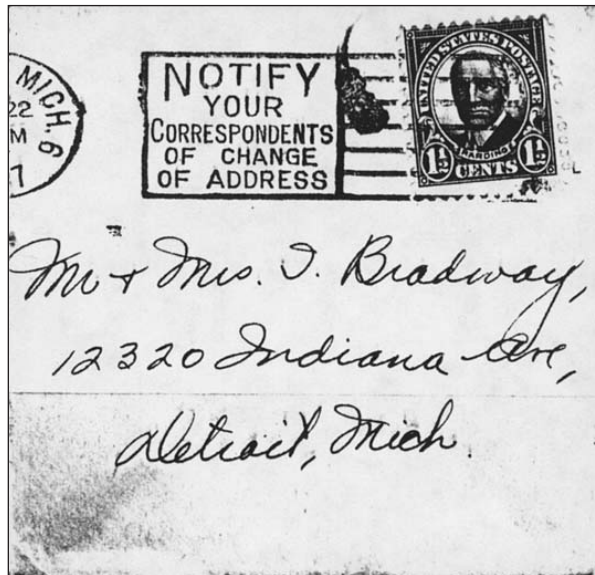 MICH. 6
22
M
7
NOTIFY
YOUR
CORRESPONDENTS
OF CHANGE
OF ADDRESS
UNITED STATES POSTAGE
HARDING
1½ CENTS 1½
Mr + Mrs. I. Bradway,
12320 Indiana Ave,
Detroit, Mich.